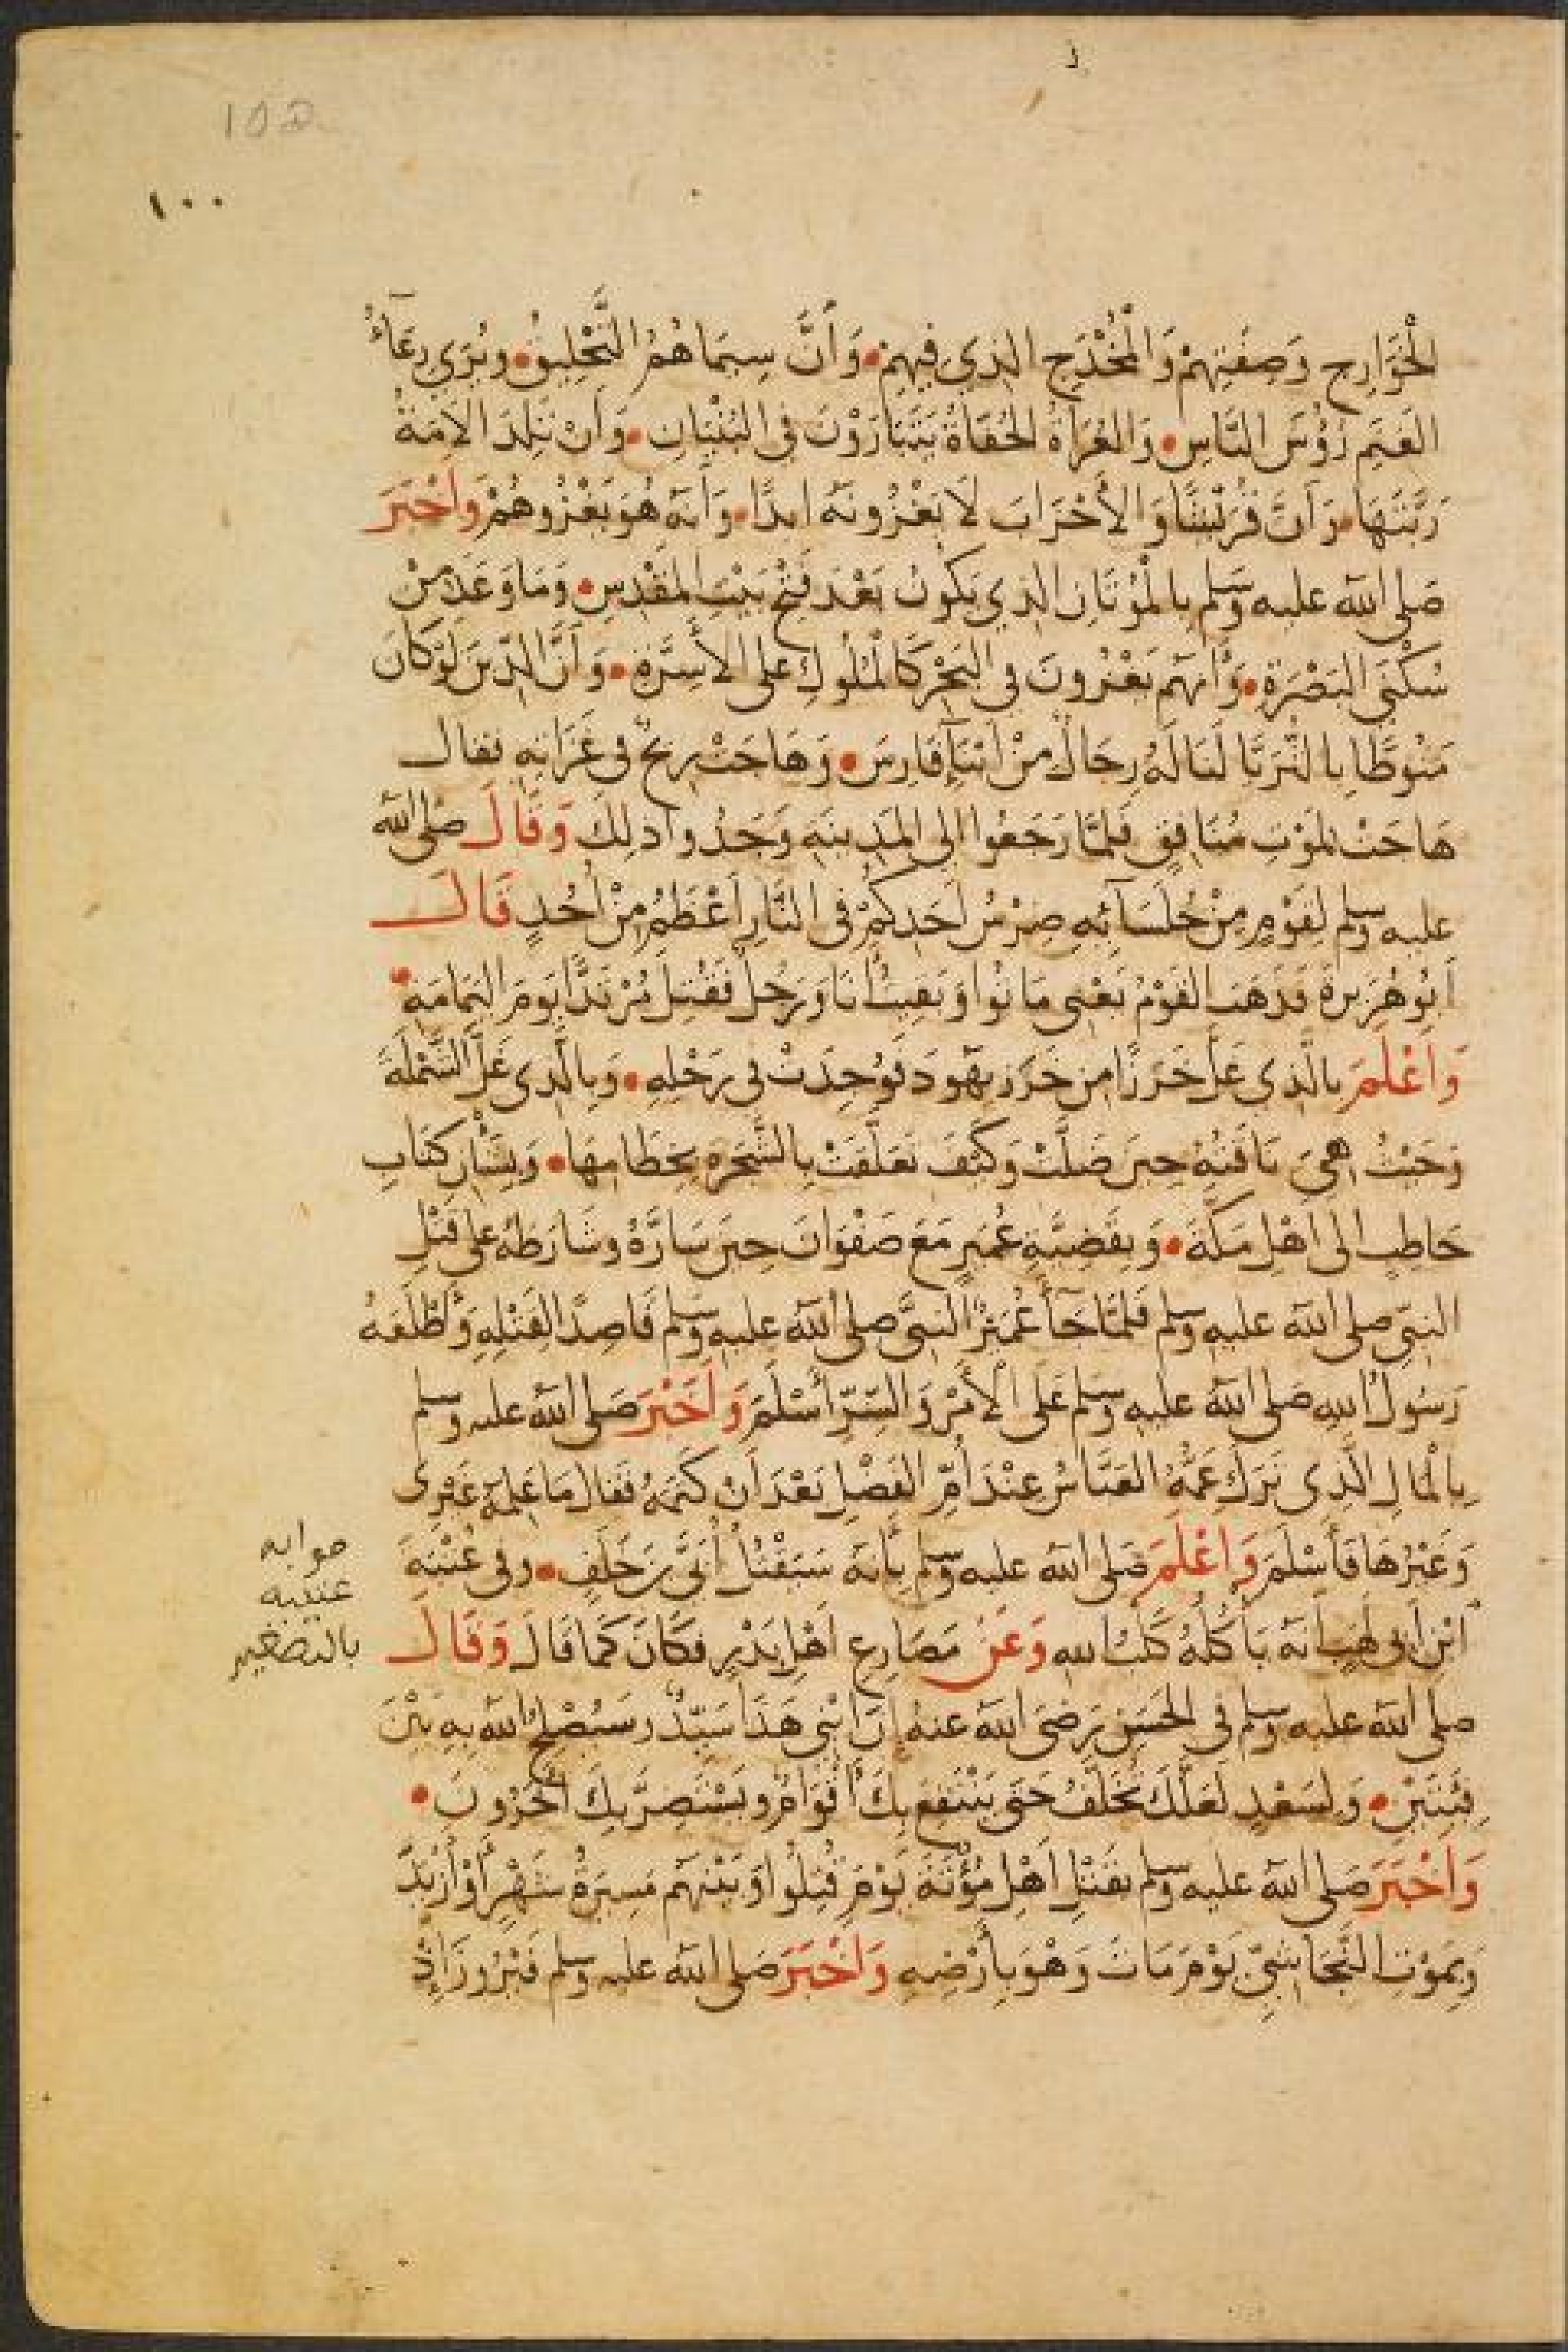 102
١٠٠
الْخَوَارِجِ وَصِفَتِهِمْ وَالْمُخْدَجِ الذِي فِيهِمْ • وَأَنَّ سِيمَاهُمُ التَّحْلِيقُ • وَيُرَى رِعَآءُ
الغَنَمِ رُؤُسَ النَّاسِ • وَالعُرَاةُ الحُفَاةُ يَتَبَارَوْنَ فِى البُنْيَانِ • وَأَنْ تَلِدَ الأَمَةُ
رَبَّتَهَا • وَأَنَّ قُرَيْشًا وَالأَحْزَابَ لَا يَغْزُونَهُ ابَدًا • وَأَنَّهُ هُوَ يَغْزُوهُمْ وَأَخْبَرَ
صَلى الله عليه وسَلم بِالْمُوتَانِ الذِي يَكُونُ بَعْدَ فَتْحِ بَيْتِ المَقْدِسِ • وَمَا وَعَدَ مِنْ
سُكْنَى البَصْرَةِ • وَأَنَّهُم يَغْزُونَ فِي البَحْرِ كَالْمُلُوكِ عَلى الأَسِرَّةِ • وَأَنَّ الدِّينَ لَوْ كَانَ
مَنُوطًا بِالثُّرَيَّا لَنَالَهُ رِجَالٌ مِنْ أَبْنَآءِ فَارِسَ • وَهَاجَتْ رِيحٌ فِى غَزَاتِهِ فقال
هَاجَتْ لِمَوْتِ مُنَافِقٍ فَلَمَّا رَجَعُوا إلى المَدِينَةِ وَجَدُوا ذلِكَ وَقَالَ صَلى الله
عليه وسلم لِقَوْمٍ مِنْ جُلَسَآئِهِ ضِرْسُ أَحَدِكُمْ فِى النَّارِ أَعْظَمُ مِنْ أُحُدٍ قَالَ
أَبُو هُرَيْرةَ فَذَهَبَ القَوْمُ يَعْنِى مَاتُوا وَبَقِيتُ أنَا وَرَجُلٌ فَقُتِلَ مُرْتَدًّا يَومَ اليَمَامَةِ •
وَأَعْلَمَ بِالَّذِي غَلَّ خَرَزًا مِن خَرَزِ يَهُودَ فَوُجِدَتْ فِى رَحْلِهِ • وَبِالَّذِى غَلَّ الشَّمْلَةَ
وَحَيْثُ هِىَ نَاقَتُهُ حِينَ ضَلَّتْ وَكَيْفَ تَعَلَّقَتْ بِالشَّجَرَةِ بِخِطَامِهَا • وَبِشَأنِ كتَابِ
حَاطِبٍ الى أَهْلِ مَكَّةَ • وَبِقَضِيَّةِ عُمَيرٍ مَعَ صَفْوَانَ حِينَ سَارَّهُ وشَارَطَهُ على قَتْلِ
النبىِّ صلى الله عليه وسلم فَلَمَّا جَآءَ عُمَيْرٌ النبىَّ صلى الله عليه وسَلم قَاصِدًا لِقَتْلِهِ وَأَطْلَعَهُ
رَسُولُ اللهِ صَلى الله عليه وسَلم عَلَى الأَمْرِ وَالسِّرِّ أَسْلَمَ وَأَخْبَرَ صَلى الله عليه وسلم
بِالْمَالِ الَّذِى تَرَكَ عَمُّهُ العَبَّاسُ عِنْدَ أُمِّ الفَضْلِ بَعْدَ أَنْ كَتَمَهُ فَقَالَ مَا عَلِمَهُ غَيْرِى
وَغَيْرُهَا فَأَسْلَمَ وَأَعْلَمَ صَلى الله عليه وسلم بِأَنَّهُ سَيَقْتُلُ أُبَىَّ بنَ خَلَفٍ • وفى عُتْبَةَ
ابْنِ أبِى لَهَبٍ أَنَّهُ يَأْكُلُهُ كَلْبُ اللهِ وَعَنْ مَصَارِعِ أهْلِ بَدْرٍ فكَانَ كَمَا قَالَ وَقَالَ
صلى الله عليه وسلم فِى الحَسَنِ رَضىَ الله عنه إنَّ ابْنِى هَذَا سَيِّدٌ وسَيُصْلِحُ الله بِهِ بَيْنَ
فِئَتَيْنِ • وَلِسَعْدٍ لَعَلَّكَ تُخَلَّفُ حَتى يَنْتَفِعَ بِكَ أَقْوَامٌ وَيَسْتَضِرَّ بِكَ آخَرُونَ •
وَأَخْبَرَ صَلى الله عليه وسلم بقَتْلِ أَهْلِ مُؤْتَةَ يَوْمَ قُتِلُوا وَبَيْنَهُم مَسِيرَةُ شَهْرٍ أَوْ أَزْيَدُ
وَبِمَوْتِ النَّجَاشِىِّ يَوْمَ مَاتَ وَهْوَ بِأَرْضِهِ وَأَخْبَرَ صَلى الله عليه وسلم فَيْرُوزَ إِذْ
صوابه
عتيبه
بالتصغير